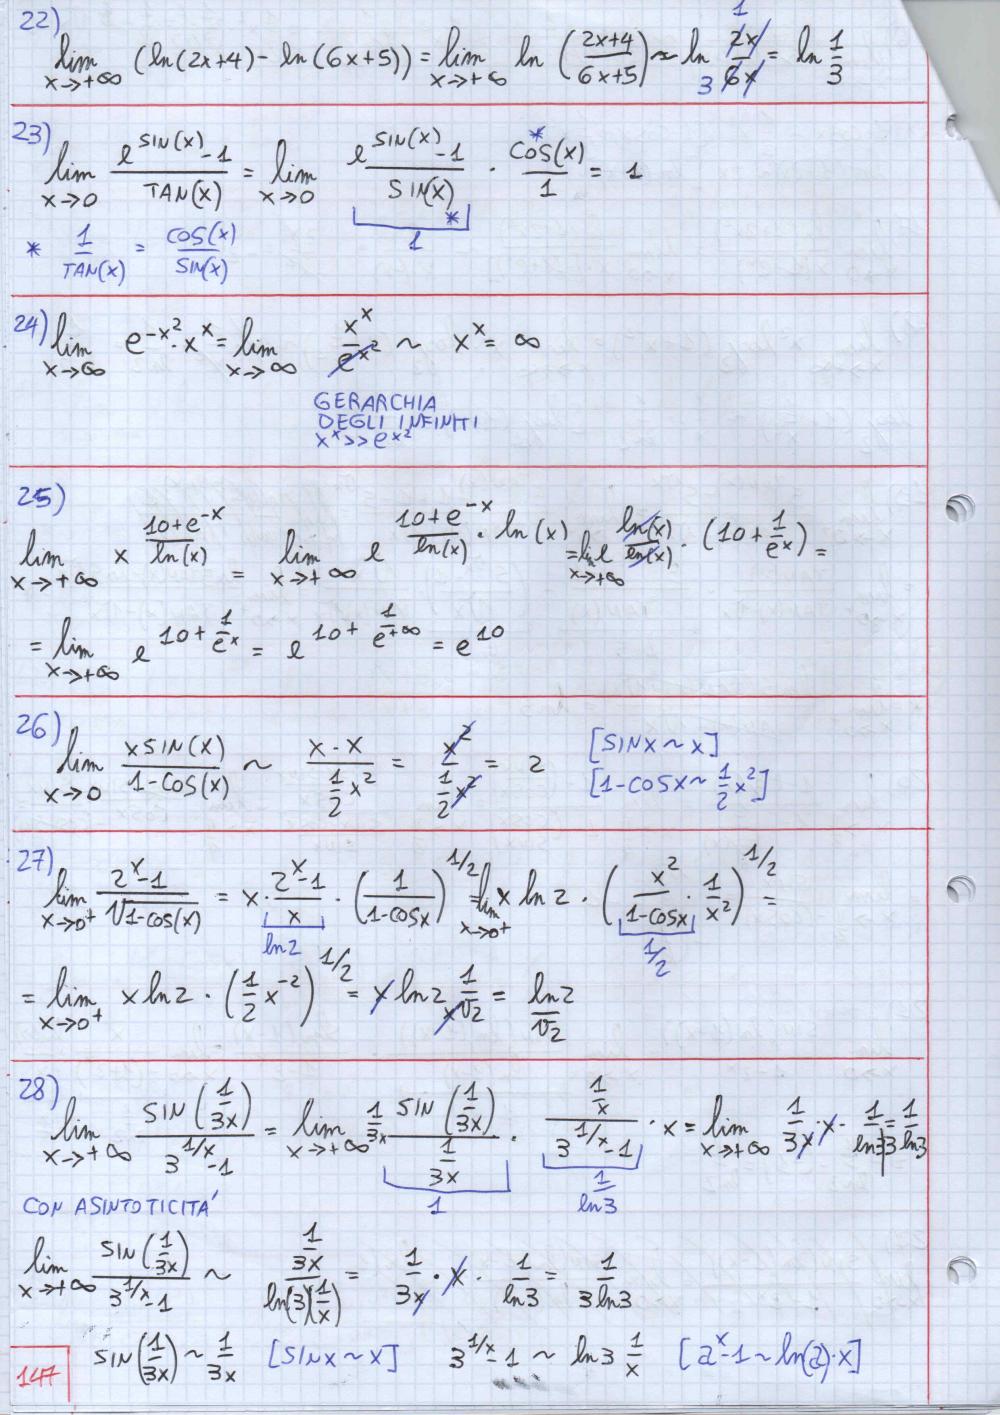 22)
lim x→+∞ (ln(2x+4) - ln(6x+5)) = lim x→+∞ ln ( 2x+4 / 6x+5 ) ~ ln 1 2x / 3 6x = ln 1/3
23)
lim x→0 e^SIN(x) -1 / TAN(x) = lim x→0 e^SIN(x) -1 / SIN(x) * · COS(x) * / 1 = 1
1
* 1 / TAN(x) = COS(x) / SIN(x)
24) lim x→∞ e^-x² · x^x = lim x→∞ x^x / e^x² ~ x^x = ∞
GERARCHIA
DEGLI INFINITI
x^x >> e^x²
25)
lim x→+∞ x^(10+e^-x / ln(x)) = lim x→+∞ e^(10+e^-x / ln(x) · ln(x)) = lim x→+∞ e^(ln(x) / ln(x) · (10 + 1/e^x)) =
= lim x→+∞ e^(10 + 1/e^x) = e^(10 + 1/e^+∞) = e^10
26)
lim x→0 x SIN(x) / 1-COS(x) ~ x·x / 1/2 x² = x² / 1/2 x² = 2 [SINx ~ x]
[1-COSx ~ 1/2 x²]
27)
lim x→0+ 2^x -1 / √1-cos(x) = x · 2^x -1 / x · ( 1 / 1-cosx )^1/2 = lim x→0+ x ln 2 · ( x² / 1-cosx · 1/x² )^1/2 =
ln2 1/2
= lim x→0+ x ln2 · ( 1/2 x^-2 )^1/2 = x ln2 1 / x√2 = ln2 / √2
28)
lim x→+∞ SIN( 1/3x ) / 3^1/x -1 = lim x→+∞ 1/3x SIN( 1/3x ) / 1/3x · 1/x / 3^1/x -1 · x = lim x→+∞ 1/3x · x · 1/ln3 = 1/3ln3
1 1/ln3
CON ASINTOTICITA'
lim x→+∞ SIN( 1/3x ) / 3^1/x -1 ~ 1/3x / ln(3)(1/x) = 1/3x · x · 1/ln3 = 1/3ln3
SIN( 1/3x ) ~ 1/3x [SINx ~ x] 3^1/x -1 ~ ln3 1/x [a^x -1 ~ ln(a)·x]
147